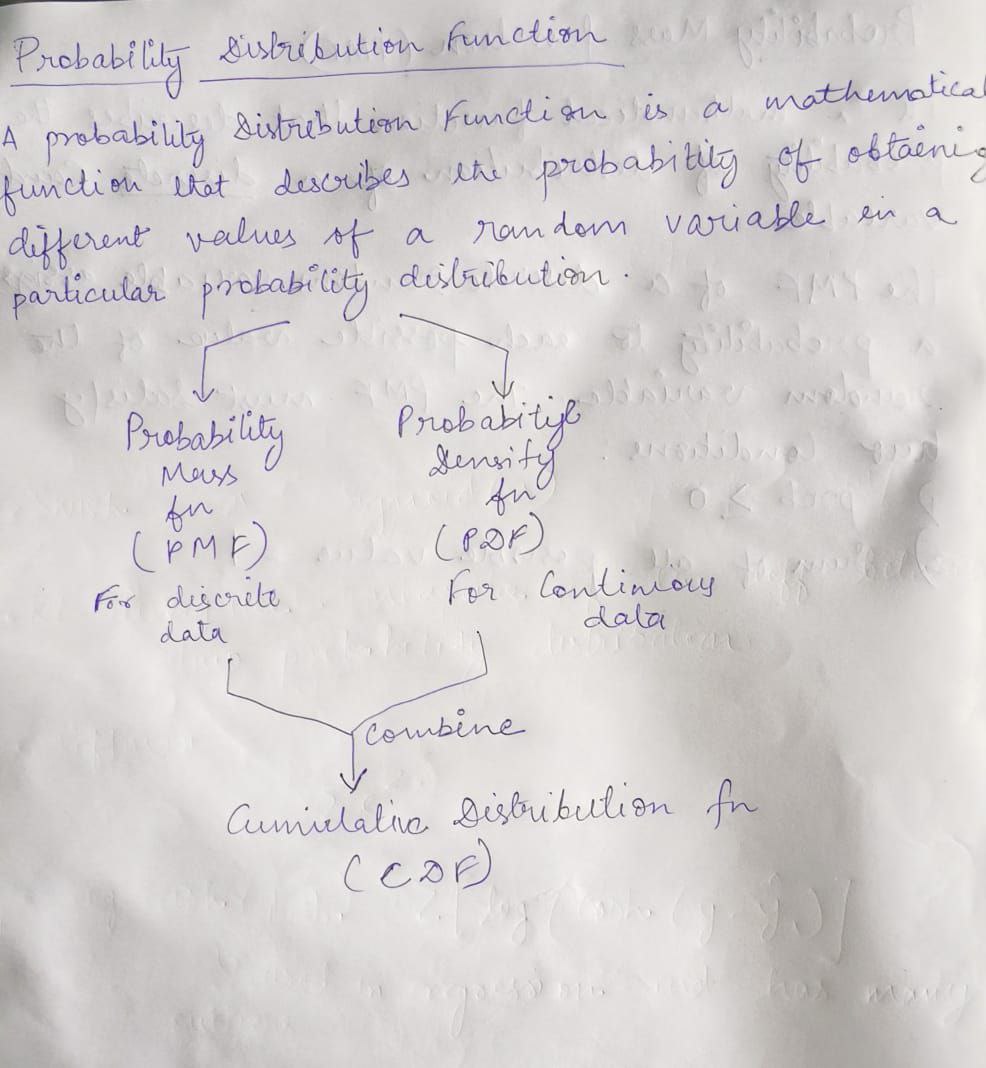 Probability Distribution Function
A probability Distribution Function is a mathematical
function that describes the probability of obtaini
different values of a random variable in a
particular probability distribution.
Probability
Mass
fn
(PMF)
For discrete
data
Probability
Density
fn
(PDF)
For Continious
data
Combine
Cumulative Distribution fn
(CDF)